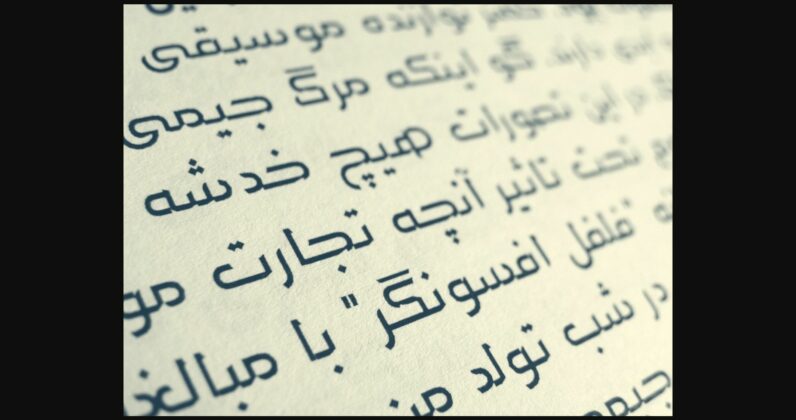 نوازنده موسیقی
دارند. گو اینکه مرگ جیمی
در این تصورات هیچ خدشه
تحت تاثیر آنچه تجارت مو
"فلفل افسونگر" با مبالغ
در شب تولد من
جیمی